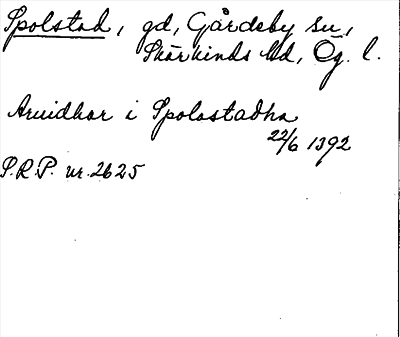 Spolstad, gd, Gårdeby sn,
Skärkinds hd, Ög. l.
Arvidhor i Spolastadha
22/6 1392
S.R.P. nr. 2625